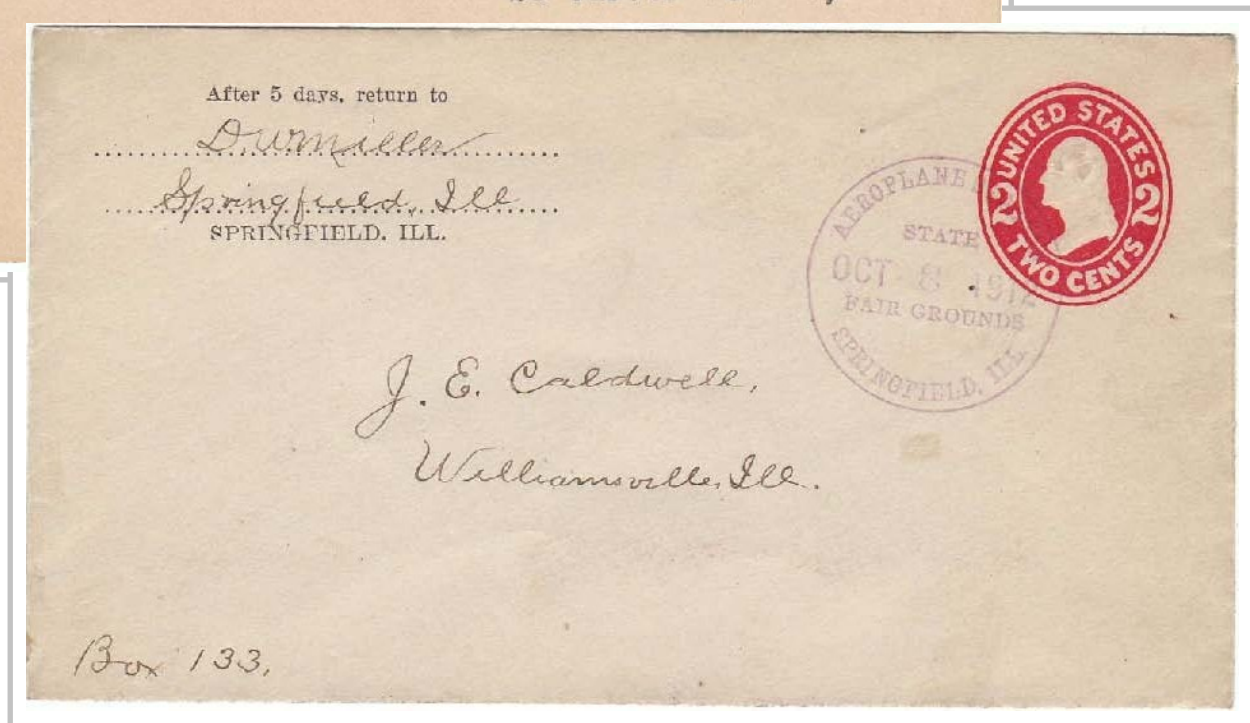 After 5 days, return to
D W Miller
Springfield, Ill
SPRINGFIELD, ILL.
UNITED STATES
2 2
TWO CENTS
AEROPLANE
STATE
OCT 8 1912
FAIR GROUNDS
SPRINGFIELD, ILL.
J. E. Caldwell,
Williamsville, Ill.
Box 133,